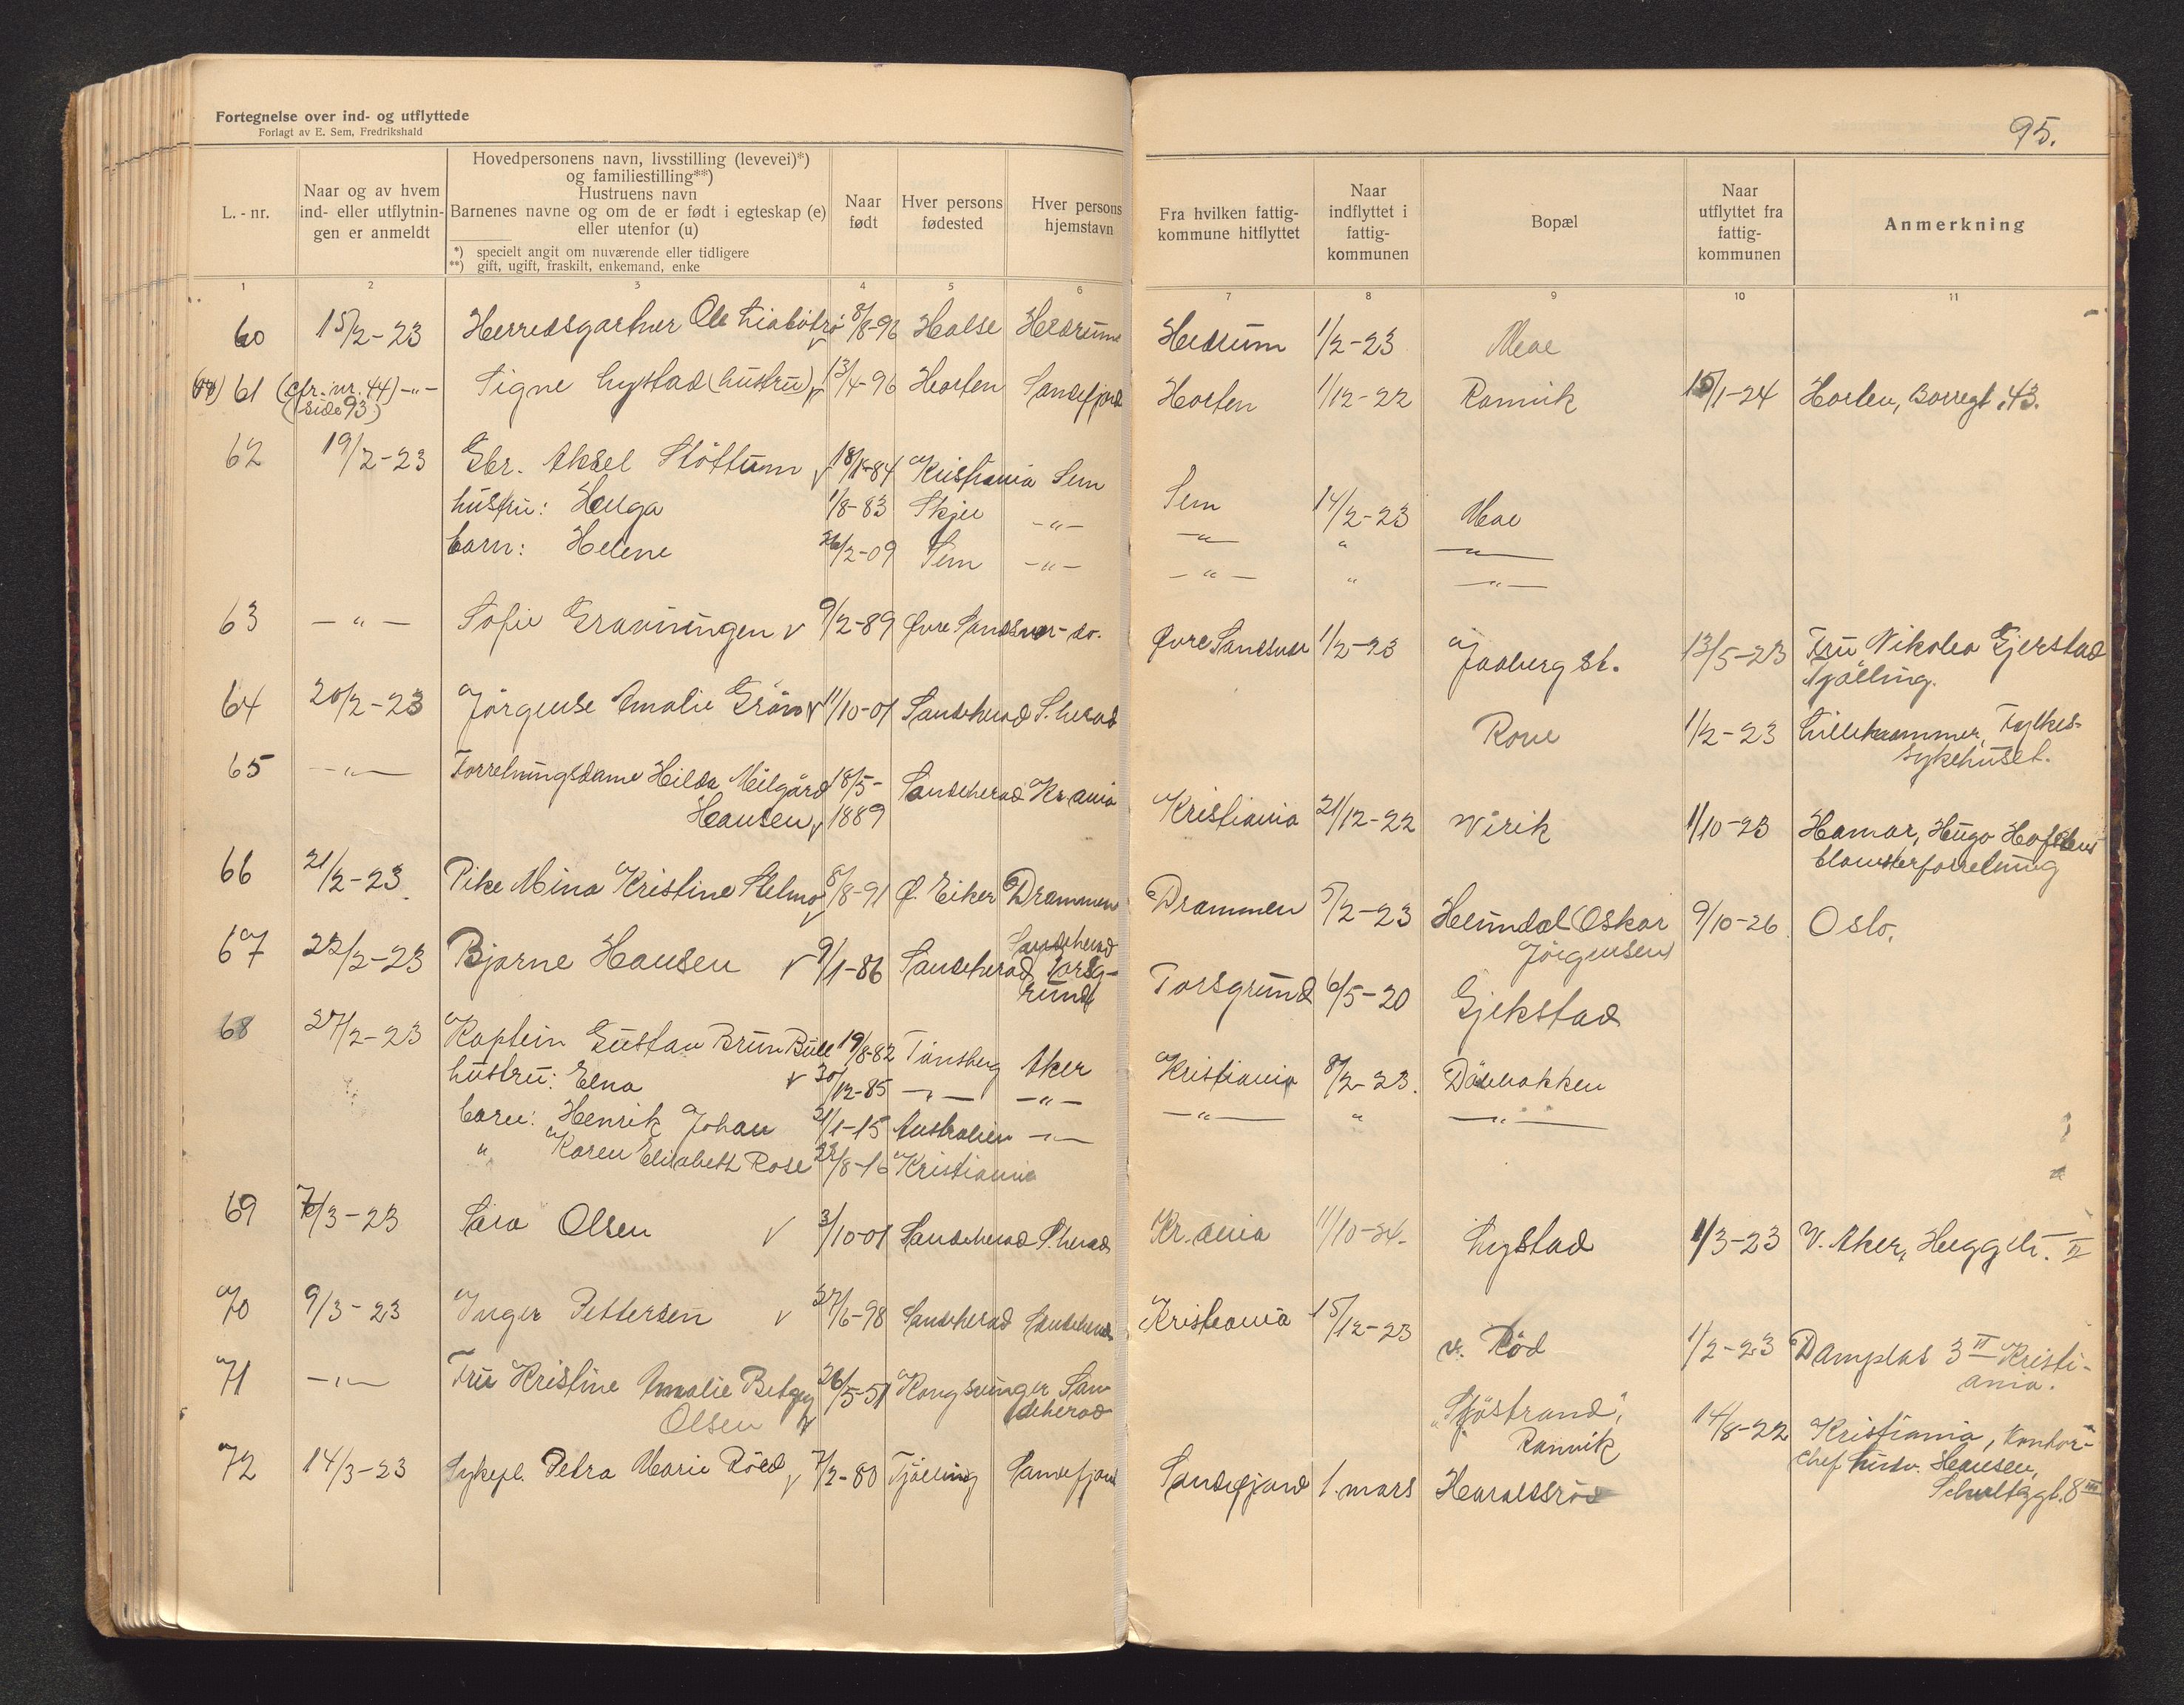 Fortegnelse over ind- og utflyttede
Forlagt av E. Sem, Fredrikshald
95.
L.-nr.
Naar og av hvem
ind- eller utflytnin-
gen er anmeldt
Hovedpersonens navn, livsstilling (levevei)*)
og familiestilling**)
Hustruens navn
Barnenes navne og om de er født i egteskap (e)
eller utenfor (u)
*) specielt angit om nuværende eller tidligere
**) gift, ugift, fraskilt, enkemand, enke
Naar
født
Hver persons
fødested
Hver persons
hjemstavn
Fra hvilken fattig-
kommune hitflyttet
Naar
indflyttet i
fattig-
kommunen
Bopæl
Naar
utflyttet fra
fattig-
kommunen
Anmerkning
1 2 3 4 5 6 7 8 9 10 11
60 15/2-23 Herredsgartner Ole 8/8-96 Halse Hedrum Hedrum 1/2-23 Moe
61 (cfr. nr. 44) -"- Signe Lystad (hustru) v 13/4-96 Horten Sandefjord Horten 1/12-22 Ranvik 15/1-24 Horten, Borregt. 43.
(side 93)
62 19/2-23 Gbr. Aksel Støttum v 18/8-84 Kristiania Sem Sem 14/2-23 Moe
hustru: Helga 1/8-83 Skjee -"- -"- " -"-
barn: Helene 26/2-09 Sem -"- -"- " -"-
63 -"- Sofie Gravningen v 9/2-89 Øvre Sandsvær -do. Øvre Sandsvær 1/2-23 Jaaberg st. 13/5-23 Fru Nikolea Gjerstad
Tjølling.
64 20/2-23 Jørgense Amalie Grøn v 11/10-01 Sandeherad S.herad Rove 1/2-23 Lillehammer, Fylkes-
sykehuset.
65 -"- Forretningsdame Hilda Milgård 18/5- Sandeherad Kr.ania Kristiania 21/12-22 Virik 1/10-23 Hamar, Hugo
Hansen v 1889 blomsterforretning
66 21/2-23. Pike Mina Kristine v 8/8-91 Ø. Eiker Drammen Drammen 5/2-23 Heimdal (Oskar 9/10-26 Oslo.
Jørgensen)
67 22/2-23 Bjarne Hansen v 9/1-86 Sandeherad Sandeherad Porsg- Porsgrund 6/5-20 Gjekstad
rund
68 27/2-23 Kaptein Gustav Brun Bull 19/8-82 Tønsberg Aker Kristiania 8/2-23. Døhlebakken
hustru: Elna v 30/12-85 -"- -"- -"- " -"-
barn: Henrik Johan 31/1-15 Australien -"-
" Karen Elisabeth Rose 22/8-16 Kristiania
69 7/3-23 Sara Olsen v 3/10-01 Sandeherad S.herad Kr.ania 11/10-24- Lystad 1/3-23 V. Aker, II
70 9/3-23 Inger Pettersen v 27/6-98 Sandeherad Sandeherad Kristiania 15/12-23 v. Rød 1/2-23 Damplas 3 II Kristi-
ania.
71 -"- Fru Kristine Amalie Betzy 26/5-51 Kongsvinger San- "Sjøstrand", 14/8-22 Kristiania, Kontor-
Olsen v deherad Ranvik chef Hansen,
72 14/3-23 Sykepl. Petra Marie Röed v 7/2-80 Tjølling Sandefjord Sandefjord 1. mars Haraldsrød
Schultzgt. 8 III